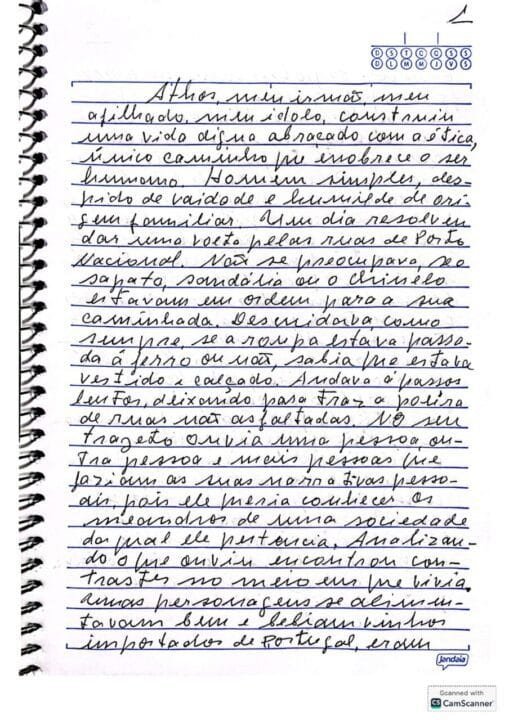 1
D S T C Q S S
D L M M J V S
Athos, meu irmão, meu
afilhado, meu ídolo, construiu
uma vida digna abraçado com a ética,
único caminho que enobrece o ser
humano. Homem simples, des-
pido de vaidade e humilde de ori-
gem familiar. Um dia resolveu
dar uma volta pelas ruas de Porto
Nacional. Não se preocupava, se o
sapato, sandália ou o chinelo
estavam em ordem para a sua
caminhada. Descuidava, como
sempre, se a roupa estava passa-
da á ferro ou não, sabia que estava
vestido e calçado. Andava á passos
lentos, deixando para traz a poeira
de ruas não asfaltadas. No seu
trageto ouvia uma pessoa ou-
tra pessoa e mais pessoas que
faziam as suas narrativas pesso-
ais, pois ele queria conhecer os
meandros de uma sociedade
da qual ele pertencia. Analizan-
do o que ouviu encontrou con-
trastes no meio em que vivia.
Umas personagens se alimen-
tavam bem e bebiam vinhos
importados de Portugal, eram
jandaia
Scanned with
CS CamScanner